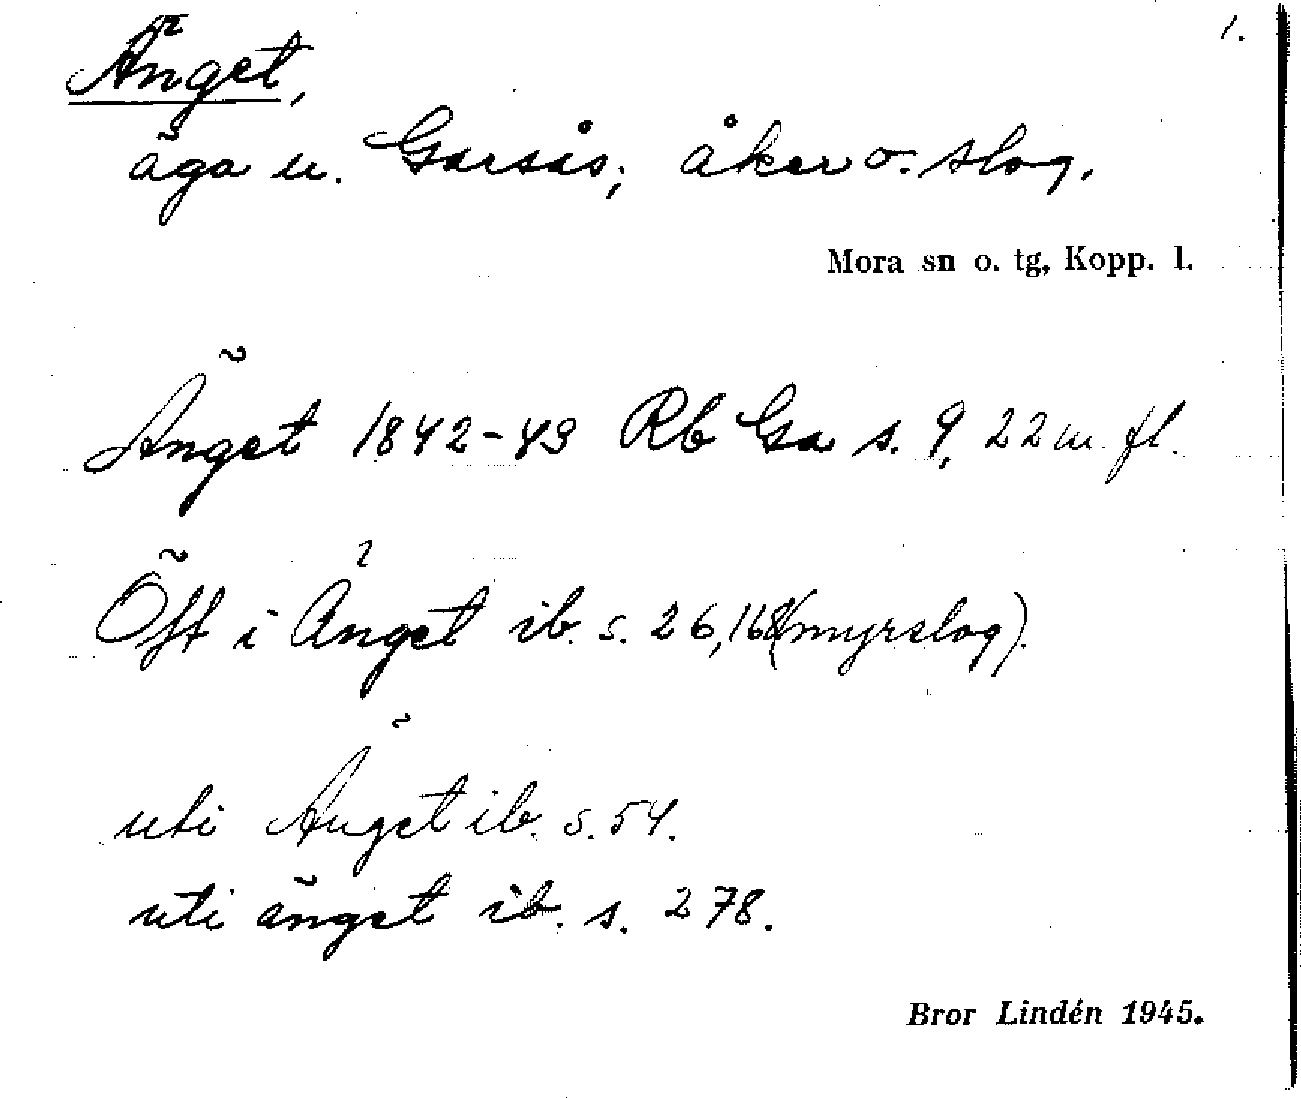 1.
Änget,
äga u. Garsås; åker o. slog.
Mora sn o. tg, Kopp. l.
Änget 1842-43 Rb Ga s. 9, 22 m. fl.
Öft i Änget ib. s. 26, 168 (myrslog).
uti Änget ib. s. 54.
uti änget ib. s. 278.
Bror Lindén 1945.